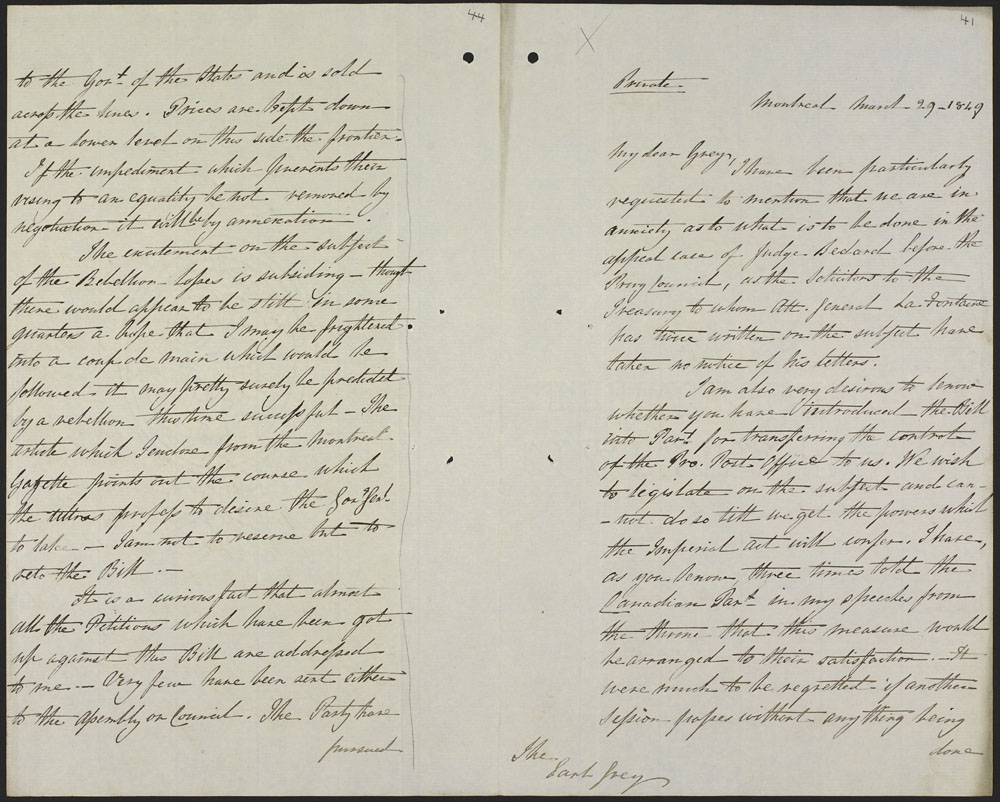 44
to the Govt of the States and is sold
across the lines. Prices are kept down
at a lower level on this side the frontier.
If the impediment which prevents their
rising to an equality be not removed by
negotiation it will be by annexation.
The excitement on the subject
of the Rebellion Losses is subsiding - though
there would appear to be still in some
quarters a hope that I may be frightened
into a coup de main which would be
followed it may pretty surely be predicted
by a rebellion this time successful - The
article which I enclose from the Montreal
Gazette points out the course which
the ultras profess to desire the Gov Genl
to take - I am not to reserve but to
veto the Bill. -
It is a curious fact that almost
all the Petitions which have been got
up against this Bill are addressed
to me - Very few have been sent either
to the Assembly or Council. The Party have
pursued
41
Private
Montreal March 29-1849
My dear Grey,
I have been particularly
requested to mention that we are in
anxiety as to what is to be done in the
appeal case of Judge Bedard before the
Privy Council, as the Solicitors to the
Treasury to whom Att. General La Fontaine
has twice written on the subject have
taken no notice of his letters.
I am also very desirous to know
whether you have introduced the Bill
into Part for transferring the control
of the Pro. Post Office to us. We wish
to legislate on the subject and can-
-not do so till we get the powers which
the Imperial Act will confer. I have,
as you know, three times told the
Canadian Part in my speeches from
the throne that this measure would
be arranged to their satisfaction. It
were much to be regretted if another
session passes without anything being
done
The
Earl Grey